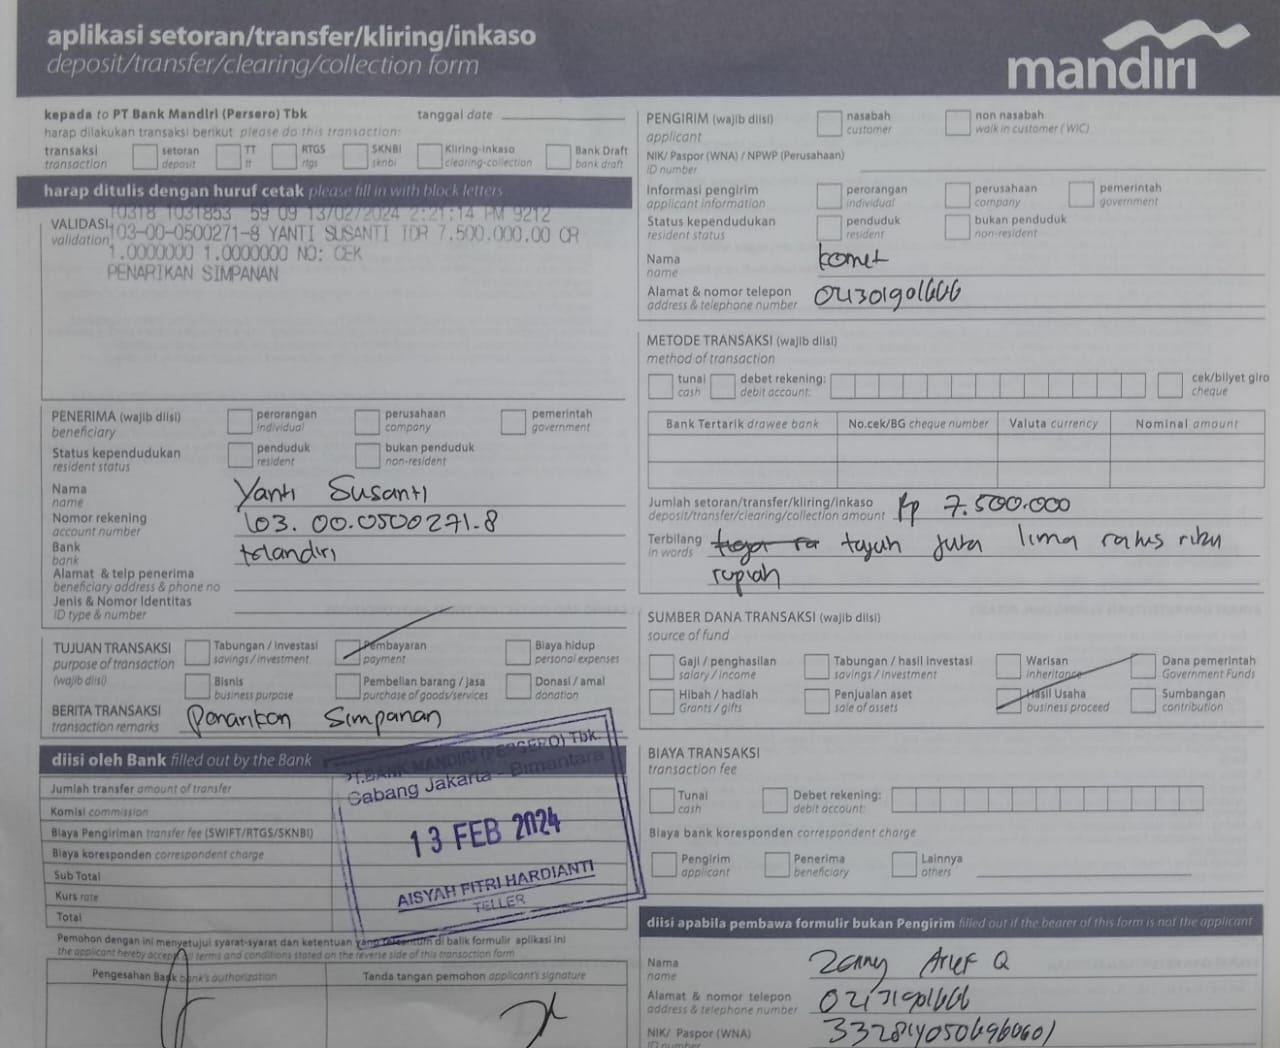 aplikasi setoran/transfer/kliring/inkaso
deposit/transfer/clearing/collection form
mandiri
kepada to PT Bank Mandiri (Persero) Tbk
tanggal date
harap dilakukan transaksi berikut please do this transaction:
transaksi transaction
setoran deposit
TT tt
RTGS rtgs
SKNBI sknbi
Kliring-inkaso clearing-collection
Bank Draft bank draft
harap ditulis dengan huruf cetak please fill in with block letters
VALIDASI validation
10318 1031853 59 09 13/02/2024 2:21:14 PM 9212
103-00-0500271-8 YANTI SUSANTI IDR 7.500.000,00 CR
1.0000000 1.0000000 NO: CEK
PENARIKAN SIMPANAN
PENERIMA (wajib diisi) beneficiary
perorangan individual
perusahaan company
pemerintah government
Status kependudukan resident status
penduduk resident
bukan penduduk non-resident
Nama name
Yanti Susanti
Nomor rekening account number
103. 00.0500271-8
Bank bank
Alamat & telp penerima
beneficiary address & phone no
Jenis & Nomor Identitas
ID type & number
TUJUAN TRANSAKSI purpose of transaction (wajib diisi)
Tabungan / investasi savings / investment
Pembayaran payment
Biaya hidup personal expenses
Bisnis business purpose
Pembelian barang / jasa purchase of goods/services
Donasi / amal donation
BERITA TRANSAKSI transaction remarks
Penarikan Simpanan
diisi oleh Bank filled out by the Bank
Jumlah transfer amount of transfer
Komisi commission
Biaya Pengiriman transfer fee (SWIFT/RTGS/SKNBI)
Biaya koresponden correspondent charge
Sub Total
Kurs rate
Total
PT.BANK MANDIRI (PERSERO) Tbk.
Cabang Jakarta - Bimantara
13 FEB 2024
AISYAH FITRI HARDIANTI
TELLER
Pemohon dengan ini menyetujui syarat-syarat dan ketentuan yang tercantum di balik formulir aplikasi ini
the applicant hereby accepts all terms and conditions stated on the reverse side of this transaction form
Pengesahan Bank bank's authorization
Tanda tangan pemohon applicant's signature
PENGIRIM (wajib diisi) applicant
nasabah customer
non nasabah walk in customer (WIC)
NIK/ Paspor (WNA) / NPWP (Perusahaan)
ID number
Informasi pengirim applicant information
perorangan individual
perusahaan company
pemerintah government
Status kependudukan resident status
penduduk resident
bukan penduduk non-resident
Nama name
komet
Alamat & nomor telepon address & telephone number
METODE TRANSAKSI (wajib diisi)
method of transaction
tunai cash
debet rekening: debit account:
cek/bilyet giro cheque
Bank Tertarik drawee bank
No.cek/BG cheque number
Valuta currency
Nominal amount
Jumlah setoran/transfer/kliring/inkaso
deposit/transfer/clearing/collection amount
Rp 7.500.000
Terbilang in words
tujuh juta lima ratus ribu
rupiah
SUMBER DANA TRANSAKSI (wajib diisi)
source of fund
Gaji / penghasilan salary / income
Tabungan / hasil investasi savings / investment
Warisan inheritance
Dana pemerintah Government Funds
Hibah / hadiah Grants / gifts
Penjualan aset sale of assets
Hasil Usaha business proceed
Sumbangan contribution
BIAYA TRANSAKSI
transaction fee
Tunai cash
Debet rekening: debit account:
Biaya bank koresponden correspondent charge
Pengirim applicant
Penerima beneficiary
Lainnya others
diisi apabila pembawa formulir bukan Pengirim filled out if the bearer of this form is not the applicant
Nama name
Zenny Arief Q
Alamat & nomor telepon
address & telephone number
NIK/ Paspor (WNA)
ID number